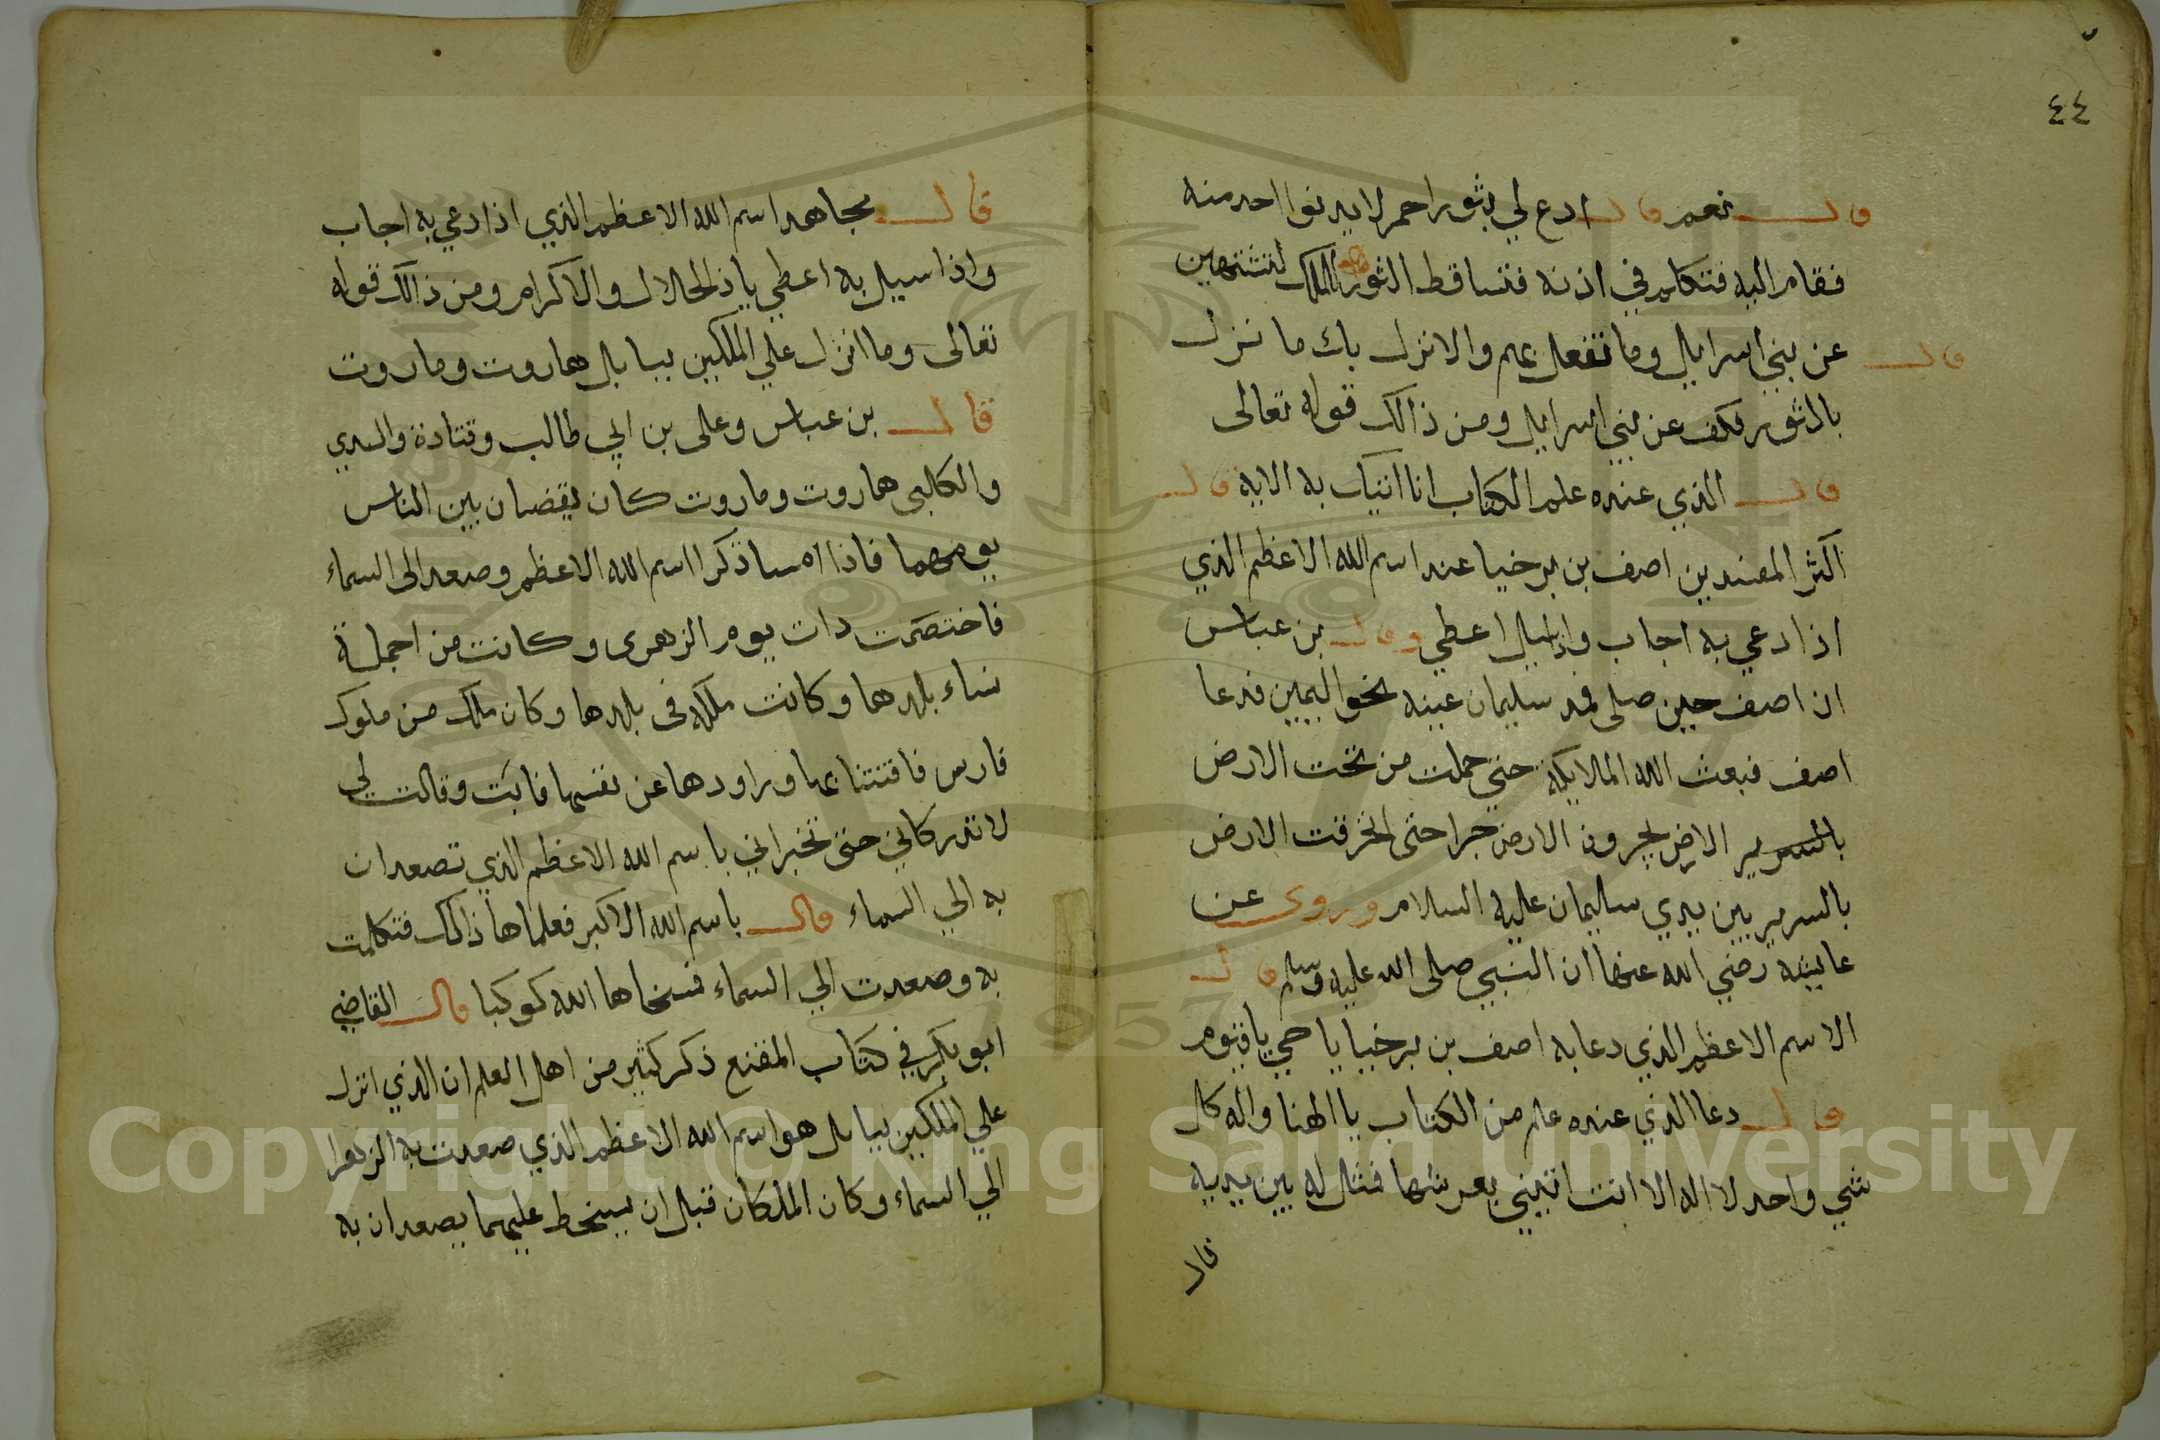 ٤٤
قال نعم قال ادع لي بثور احمر لا يدنوا احد منه
فقام اليه فتكلم في اذنه فتساقط الثور الملك لتنتهين
عن بني اسرايل وما تفعل بهم والا نزل بك ما نزل قال
بالثور فكف عن بني اسرايل ومن ذالك قوله تعالى
قال الذي عنده علم الكتاب انا اتيك به الاية قال
اكثر المفسدين اصف بن برخيا عند اسم الله الاعظم الذي
اذا دعي به اجاب واذا سيل اعطي وقال بن عباس
ان اصف حين صلى مد سليمان عينه نحو اليمين فدعا
اصف فبعث الله الملايكة حتي حملت من تحت الارض
بالسرير الارض يجرون الارض جرا حتى انخرقت الارض
بالسرير بين يدي سليمان عليه السلام وروى عن
عايشه رضي الله عنها ان النبي صلى الله عليه وسلم قال
الاسم الاعظم الذي دعا به اصف بن برخيا يا حي يا قيوم
قال دعا الذي عنده علم من الكتاب يا الهنا واله كل
شي واحد لا اله الا انت اتيني بعرشها فمثل له بين يديه
قال
قال مجاهد اسم الله الاعظم الذي اذا دعي به اجاب
واذا سيل به اعطي ياذ الجلال والاكرام ومن ذالك قوله
تعالى وما انزل علي الملكين ببابل هاروت وماروت
قال بن عباس وعلى بن ابي طالب وقتادة والسدي
والكلبى هاروت وماروت كان يقضيان بين الناس
يومهما فاذا امسا ذكرا اسم الله الاعظم وصعد الى السماء
فاختصمت دات يوم الزهرى وكانت من اجملة
نساء بلدهما وكانت ملكه فى بلدها وكان ملك من ملوك
فارس فافتتنا بها وراودها عن نفسها فابت وقالت لي
لا تدركاني حتى تخبراني باسم الله الاعظم الذي تصعدان
به الي السماء قال باسم الله الاكبر فعلماها ذالك فتكلمت
به وصعدت الي السماء فمسخاها الله كوكبا قال القاضي
ابو بكر في كتاب المقنع ذكر كثير من اهل العلم ان الذي انزل
علي الملكين ببابل هو اسم الله الاعظم الذي صعدت به الزهرا
الي السماء وكان الملكان قبل ان يسخط عليهما يصعدان به
Copyright © King Saud University
1957